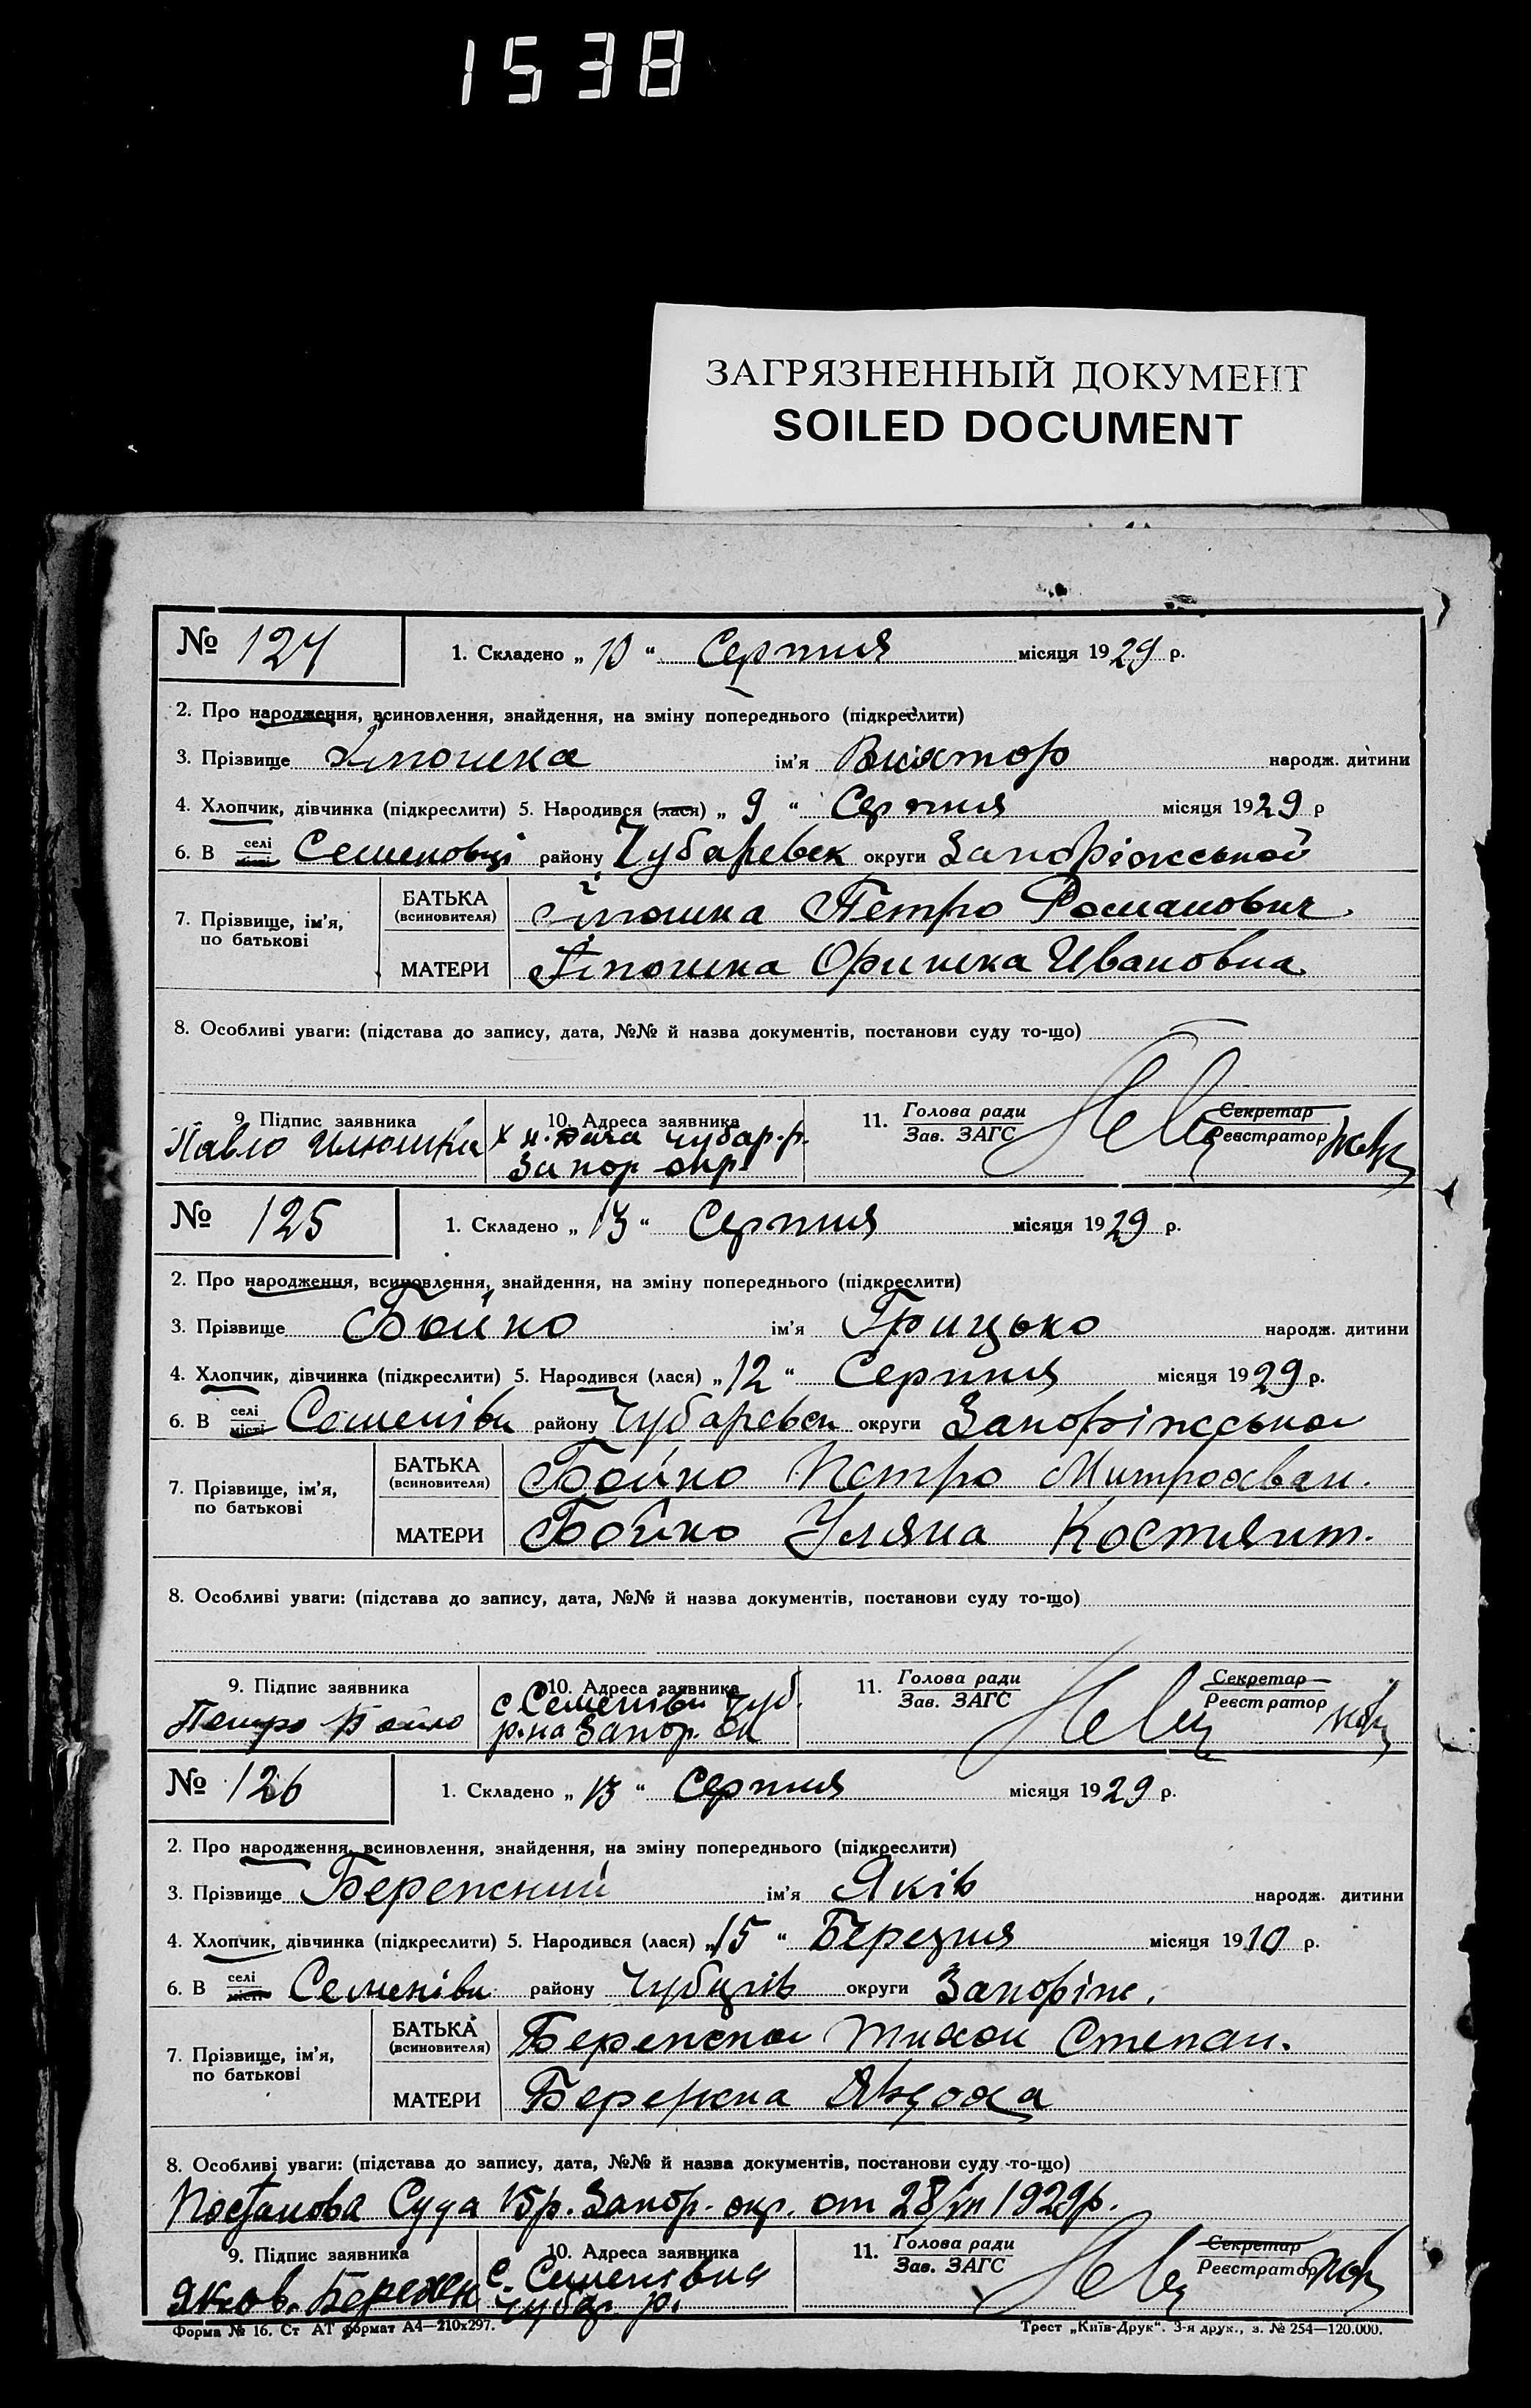 1538
ЗАГРЯЗНЕННЫЙ ДОКУМЕНТ
SOILED DOCUMENT
№ 124 1. Складено „ 10 “ Серпня місяця 1929 р.
2. Про народження, всиновлення, знайдення, на зміну попереднього (підкреслити)
3. Прізвище ім'я Виктор народж. дитини
4. Хлопчик, дівчинка (підкреслити) 5. Народився (лася) „ 9 “ Серпня місяця 1929 р
6. В селі місті Семеновці району Чубаревск округи Запоріжської
7. Прізвище, ім'я, по батькові
БАТЬКА (всиновителя) Петро Романович
МАТЕРИ Оришка Ивановна
8. Особливі уваги: (підстава до запису, дата, №№ й назва документів, постанови суду то-що)
9. Підпис заявника 10. Адреса заявника 11. Голова ради Зав. ЗАГС Секретар Реєстратор
Павло Илюшка х н. Дача Чубар. р.
Запор окр
№ 125 1. Складено „ 13 “ Серпня місяця 1929 р.
2. Про народження, всиновлення, знайдення, на зміну попереднього (підкреслити)
3. Прізвище Бойко ім'я Грицько народж. дитини
4. Хлопчик, дівчинка (підкреслити) 5. Народився (лася) „ 12 “ Серпня місяця 1929 р.
6. В селі місті Семенівк району Чубаревск округи Запоріжська
7. Прізвище, ім'я, по батькові
БАТЬКА (всиновителя) Бойко Петро Митрохван.
МАТЕРИ Бойко Уляна Костянт.
8. Особливі уваги: (підстава до запису, дата, №№ й назва документів, постанови суду то-що)
9. Підпис заявника 10. Адреса заявника 11. Голова ради Зав. ЗАГС Секретар Реєстратор
Петро Бойко с Семенівк Чуб.
р-на Запор. ок
№ 126 1. Складено „ 13 “ Серпня місяця 1929 р.
2. Про народження, всиновлення, знайдення, на зміну попереднього (підкреслити)
3. Прізвище Бережний ім'я Яків народж. дитини
4. Хлопчик, дівчинка (підкреслити) 5. Народився (лася) „ 15 “ Березня місяця 1910 р.
6. В селі місті Семенівк району округи Запоріж.
7. Прізвище, ім'я, по батькові
БАТЬКА (всиновителя) Тихон Степан.
МАТЕРИ Бережна Явдоха
8. Особливі уваги: (підстава до запису, дата, №№ й назва документів, постанови суду то-що)
Постанова Суда 15р. Запор. окр. от 28/VII 1929р.
9. Підпис заявника 10. Адреса заявника 11. Голова ради Зав. ЗАГС Секретар Реєстратор
Яков. Бережн с. Семенівка
Чубар р.
Форма № 16. Ст АТ формат А4—210х297. Трест „Київ-Друк“. 3-я друк., з. № 254—120.000.